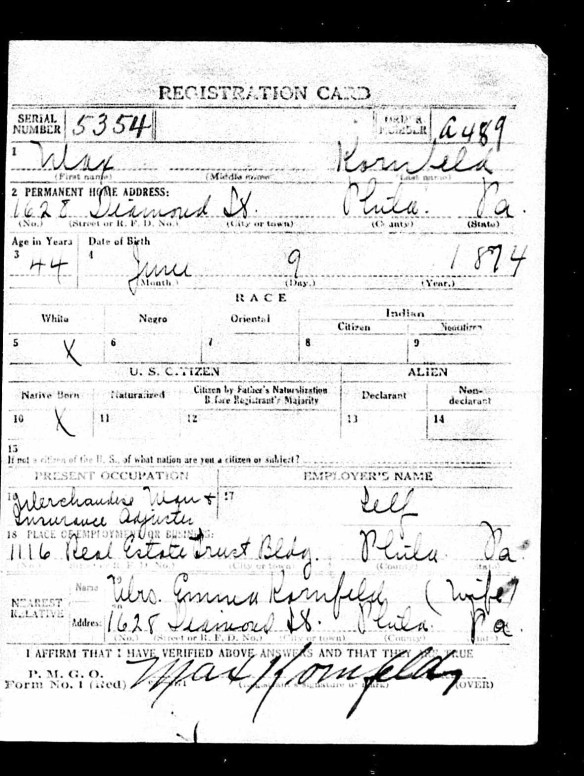 REGISTRATION CARD
SERIAL NUMBER 5354 ORDER NUMBER A489
1 Max Kornfeld
(First name) (Middle name) (Last name)
2 PERMANENT HOME ADDRESS:
1628 Diamond St. Phila. Pa.
(No.) (Street or R. F. D. No.) (City or town) (County) (State)
Age in Years Date of Birth
3 44 4 June 9 1874
(Month.) (Day.) (Year.)
RACE
White Negro Oriental Indian
Citizen Noncitizen
5 X 6 7 8 9
U. S. CITIZEN ALIEN
Native Born Naturalized Citizen by Father's Naturalization Before Registrant's Majority Declarant Non-declarant
10 X 11 12 13 14
15
If not a citizen of the U. S., of what nation are you a citizen or subject?
PRESENT OCCUPATION EMPLOYER'S NAME
16 Merchandise Man + 17 Self
Insurance Adjuster
18 PLACE OF EMPLOYMENT OR BUSINESS:
1116 Real Estate Trust Bldg. Phila. Pa.
(City or town) (County) (State)
NEAREST RELATIVE
Name Mrs. Emma Kornfeld (Wife)
Address 1628 Diamond St. Phila. Pa.
(No.) (Street or R. F. D. No.) (City or town) (County) (State)
I AFFIRM THAT I HAVE VERIFIED ABOVE ANSWERS AND THAT THEY ARE TRUE
P. M. G. O.
Form No. 1 (Red) Max Kornfeld (OVER)
(Registrant's signature or mark)